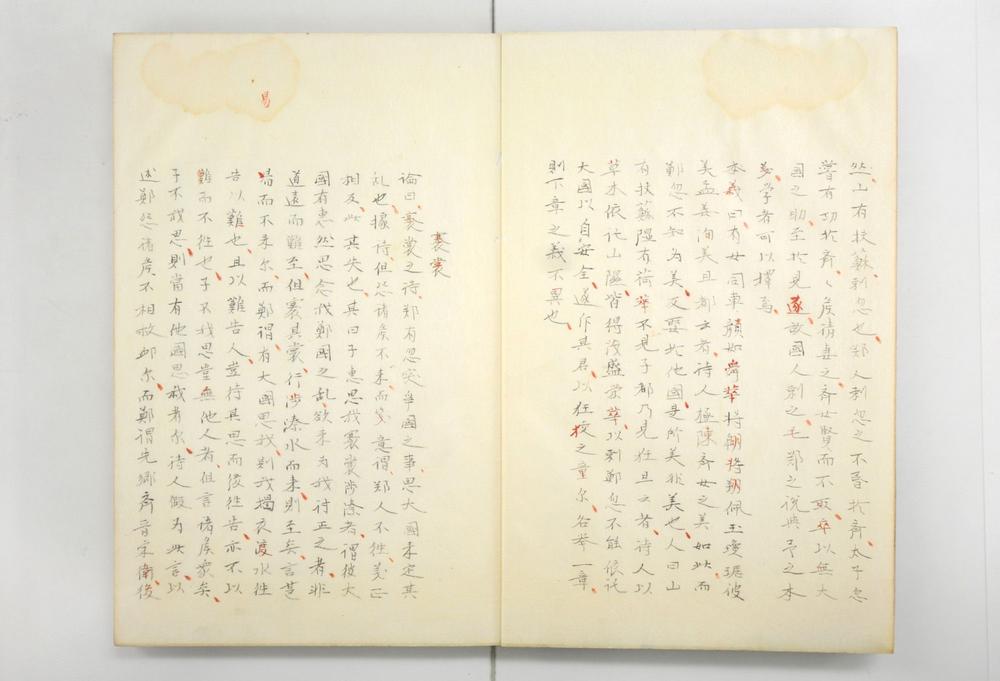 然山有扶蘇刺忽也鄭人刺忽之不昏於齊太子忽
嘗有功於齊、侯請妻之齊女賢而不取卒以無大
國之助至於見逐故國人刺之毛鄭之說與予之本
義學者可以擇焉
本義曰有女同車顏如舜華將翱將翔佩玉瓊琚彼
美孟姜洵美且都云者詩人極陳齊女之美如此而
鄭忽不知為美反娶於他國是所美非美也人曰山
有扶蘇隰有荷華不見子都乃見狂且云者詩人以
草木依託山隰皆得茂盛榮華以刺鄭忽不能依託
大國以自安全遂作其君以狂狡之童尔各舉一章
則下章之義不異也
褰裳
論曰褰裳之詩鄭有忽突爭國之事思大國來定其
亂也據詩但怨諸侯不來而箋意謂鄭人不往義正
相反此其失也其曰子惠思我褰裳涉溱者謂彼大
國有惠然思念我鄭國之亂欲來為我討正之者非
道遠而難至但褰其裳行涉溱水而來則至矣言甚
易
場而不來尔而鄭謂有大國思我則我揭衣渡水往
告以難也且以難告人豈待其思而後往告亦不以
難而不往也子不我思豈無他人者但言諸侯衆矣
子不我思則當有他國思我者尔詩人假為此言以
述鄭怨諸侯不相救卹尔而鄭謂先鄉齊晉宋衛後